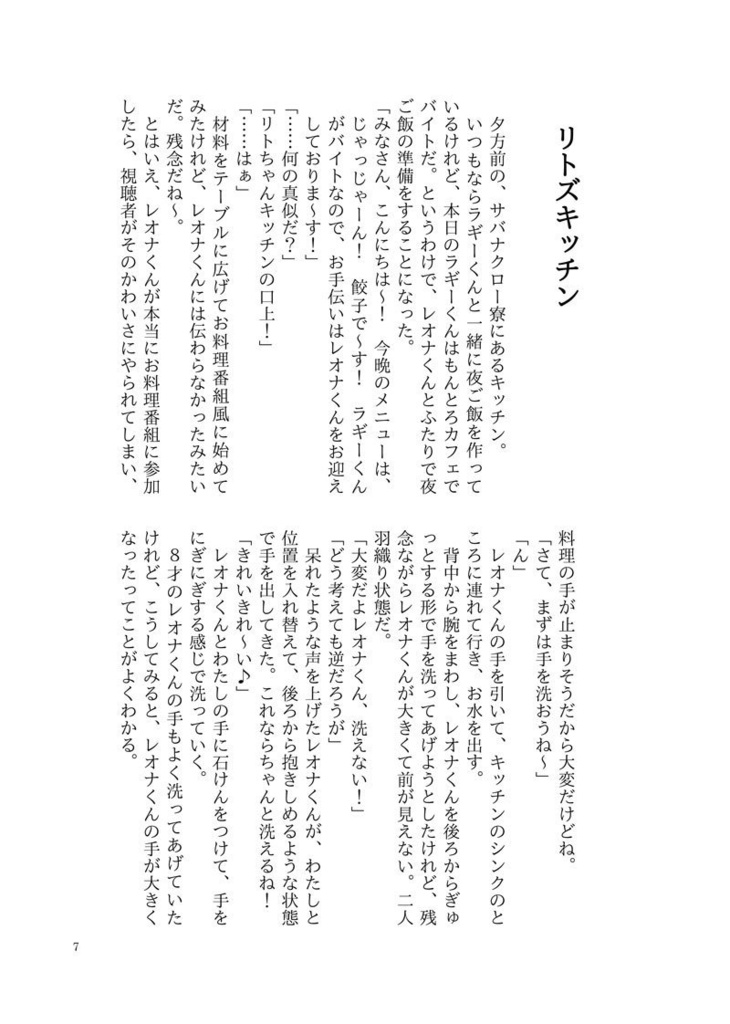 リトズキッチン
夕方前の、サバナクロー寮にあるキッチン。
いつもならラギーくんと一緒に夜ご飯を作って
いるけれど、本日のラギーくんはもんとろカフェで
バイトだ。というわけで、レオナくんとふたりで夜
ご飯の準備をすることになった。
「みなさん、こんにちは〜！　今晩のメニューは、
じゃっじゃーん！　餃子で〜す！　ラギーくん
がバイトなので、お手伝いはレオナくんをお迎え
しておりま〜す！」
「……何の真似だ？」
「リトちゃんキッチンの口上！」
「……はぁ」
材料をテーブルに広げてお料理番組風に始めて
みたけれど、レオナくんには伝わらなかったみたい
だ。残念だね〜。
とはいえ、レオナくんが本当にお料理番組に参加
したら、視聴者がそのかわいさにやられてしまい、
料理の手が止まりそうだから大変だけどね。
「さて、まずは手を洗おうね〜」
「ん」
レオナくんの手を引いて、キッチンのシンクのと
ころに連れて行き、お水を出す。
背中から腕をまわし、レオナくんを後ろからぎゅ
っとする形で手を洗ってあげようとしたけれど、残
念ながらレオナくんが大きくて前が見えない。二人
羽織り状態だ。
「大変だよレオナくん、洗えない！」
「どう考えても逆だろうが」
呆れたような声を上げたレオナくんが、わたしと
位置を入れ替えて、後ろから抱きしめるような状態
で手を出してきた。これならちゃんと洗えるね！
「きれいきれ〜い♪」
レオナくんとわたしの手に石けんをつけて、手を
にぎにぎする感じで洗っていく。
８才のレオナくんの手もよく洗ってあげていた
けれど、こうしてみると、レオナくんの手が大きく
なったってことがよくわかる。
7